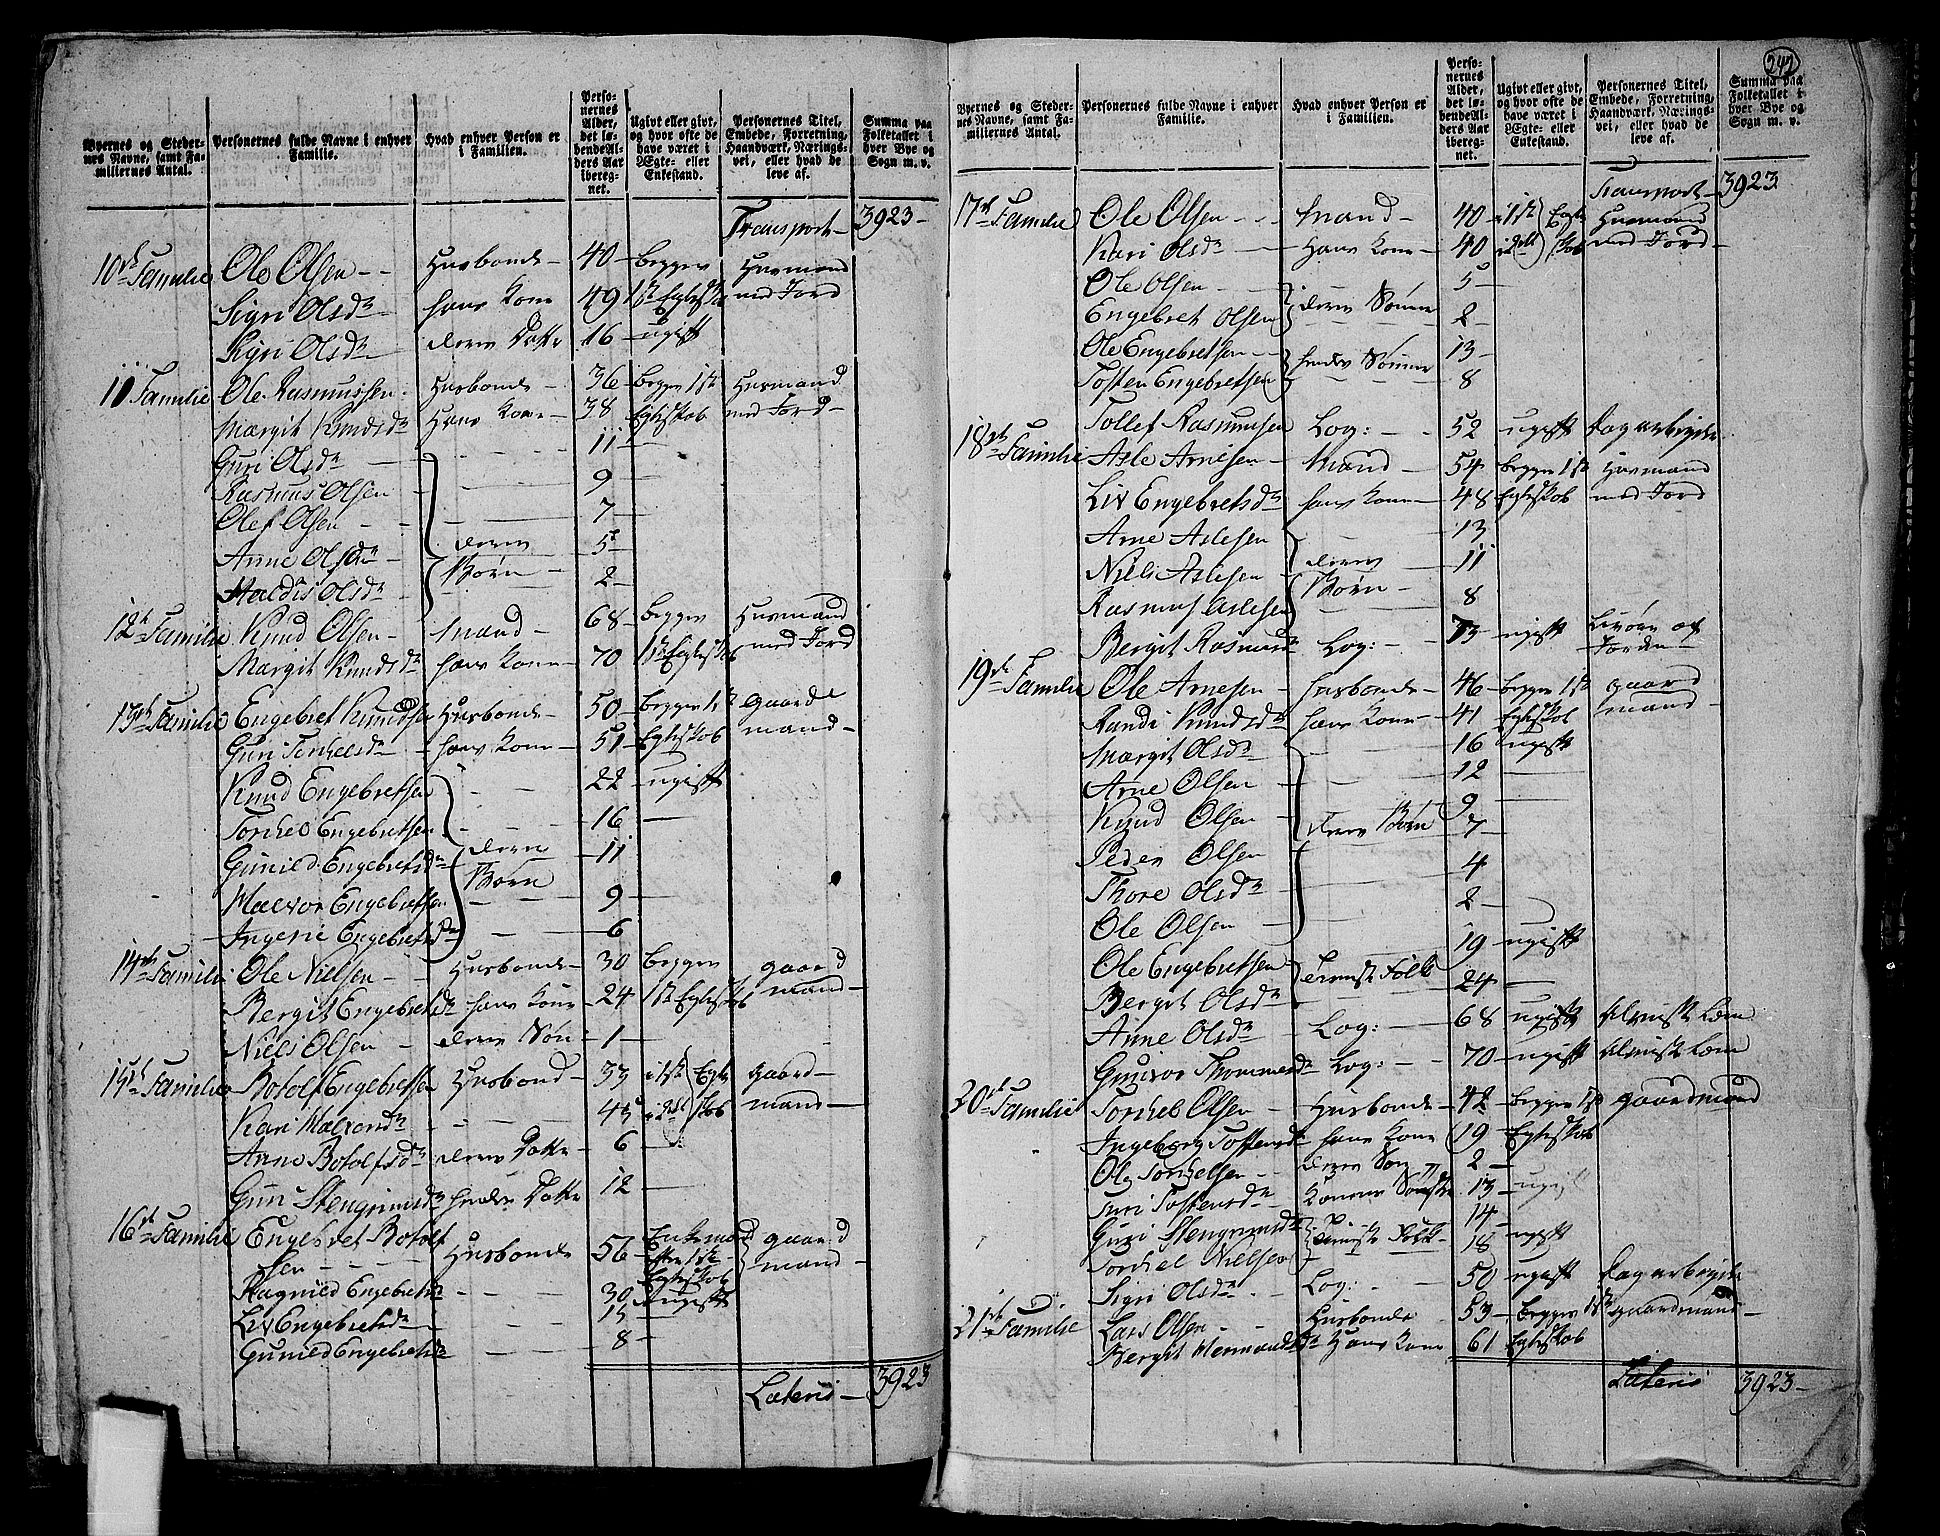 Byernes og Stedernes Navne, samt Familiernes Antal. | Personernes fulde Navne i enhver Familie. | Hvad enhver Person er i Familien. | Personernes Alder, det løbende Alders Aar iberegnet. | Ugivt eller givt, og hvor ofte de have været i Ægte- eller Enkestand. | Personernes Titel, Embede, Forretning, Haandværk, Næringsvei, eller hvad de leve af. | Summa paa Folketallet i hver Bye og Sogn m. v.
Transport 3923
10de Familie Ole Olsen Husbonde 40 begge Huusmand
Sigri Olsdr hans Kone 49 1ste Egteskab med Jord
Sigri Olsdr deres Datter 16 ugift
11 Familie Ole Rasmussen Husbonde 36 begge i 1ste Huusmand
Margit Knudsdr Hans Kone 38 Egteskab med Jord
Guri Olsdr 11
Rasmus Olsen 9
Olef Olsen 7
Anne Olsdr deres 5
Haldis Olsdr Børn 2
12te Familie Knud Olsen Mand 68 begge Huusmand
Margit Knudsdr hans Kone 70 1ste Egteskab med Jord
13de Familie Engebret Knudsen Husbonde 50 begge 1ste gaard
Guri Torkelsdr hans Kone 51 Egteskab mand
Knud Engebretsen 22 ugift
Torkel Engebretsen 16
Gunild Engebretsdr deres 11
Halvor Engebretsen Børn 9
Ingerie Engebretsdr 6
14de Familie Ole Nielsen Husbonde 30 begge gaard
Bergit Engebretsdr hans Kone 24 1ste Egteskab mand
Niels Olsen deres Søn 1
15de Familie Botolf Engebretsen Husbond 33 i 1ste Egte gaard
Kari Halvorsdr 45 i 2det skab mand
Anne Botolfsdr deres Datter 6
Guri Stengrimsdr hendes Datter 12
16de Familie Engebret Botolf Enkemand gaard
sen Husbonde 56 efter 1ste mand
Egteskab
Ragnild Engebretsdr 30 ugift
Liv Engebretsdr 15
Gunild Engebretsdr 8
Lateris 3923
242
Byernes og Stedernes Navne, samt Familiernes Antal. | Personernes fulde Navne i enhver Familie. | Hvad enhver Person er i Familien. | Personernes Alder, det løbende Alders Aar iberegnet. | Ugivt eller givt, og hvor ofte de have været i Ægte- eller Enkestand. | Personernes Titel, Embede, Forretning, Haandværk, Næringsvei, eller hvad de leve af. | Summa paa Folketallet i hver Bye og Sogn m. v.
Transport 3923
17de Familie Ole Olsen Mand 40 i 1ste Egte Huusmand
Kari Olsdr Hans Kone 40 i 2det skab med Jord
Ole Olsen 5
Engebret Olsen deres Sønner 2
Ole Engebretsen 13
Tosten Engebretsen hendes Sønner 8
Tollef Rasmusen Log: 52 ugift Dagarbejde
18de Familie Asle Arnesen Mand 54 begge 1ste Huusmand
Liv Engebretsdr hans Kone 48 Egteskab med Jord
Arne Aslesen 13
Niels Aslesen deres 11
Rasmus Aslesen Børn 8
Bergit Rasmusdr Log: 73 ugift Levøre af
Jorden
19de Familie Ole Arnesen Husbonde 46 begge 1ste gaard
Randi Knudsdr hans Kone 41 Egteskab mand
Margit Olsdr 16 ugift
Arne Olsen 12
Knud Olsen 9
Peder Olsen deres Børn 7
Thore Olsdr 4
Ole Olsen 2
Ole Engebretsen 19 ugift
Bergit Olsdr Tienist Folk 24
Anne Olsdr Log: 68 ugift Almisse Lem
Gunvor Thommesdr Log: 70 ugift Almisse Lem
20de Familie Torkel Olsen Husbonde 42 begge 1ste gaardmand
Ingeborg Tostensdr hans Kone 19 Egteskab
Ole Torkelsen deres Søn 2
Turi Tostensdr Konens Søster 13 ugift
Guri Stengrimsdr 14
Torkel Nielsen Tieniste Folk 18 ugift
Sigri Olsdr Log: 50 ugift Dagarbejde
21de Familie Lars Olsen Husbonde 53 begge 1ste gaardmand
Bergit Hermandsdr Hans Kone 61 Egteskab
Lateris 3923